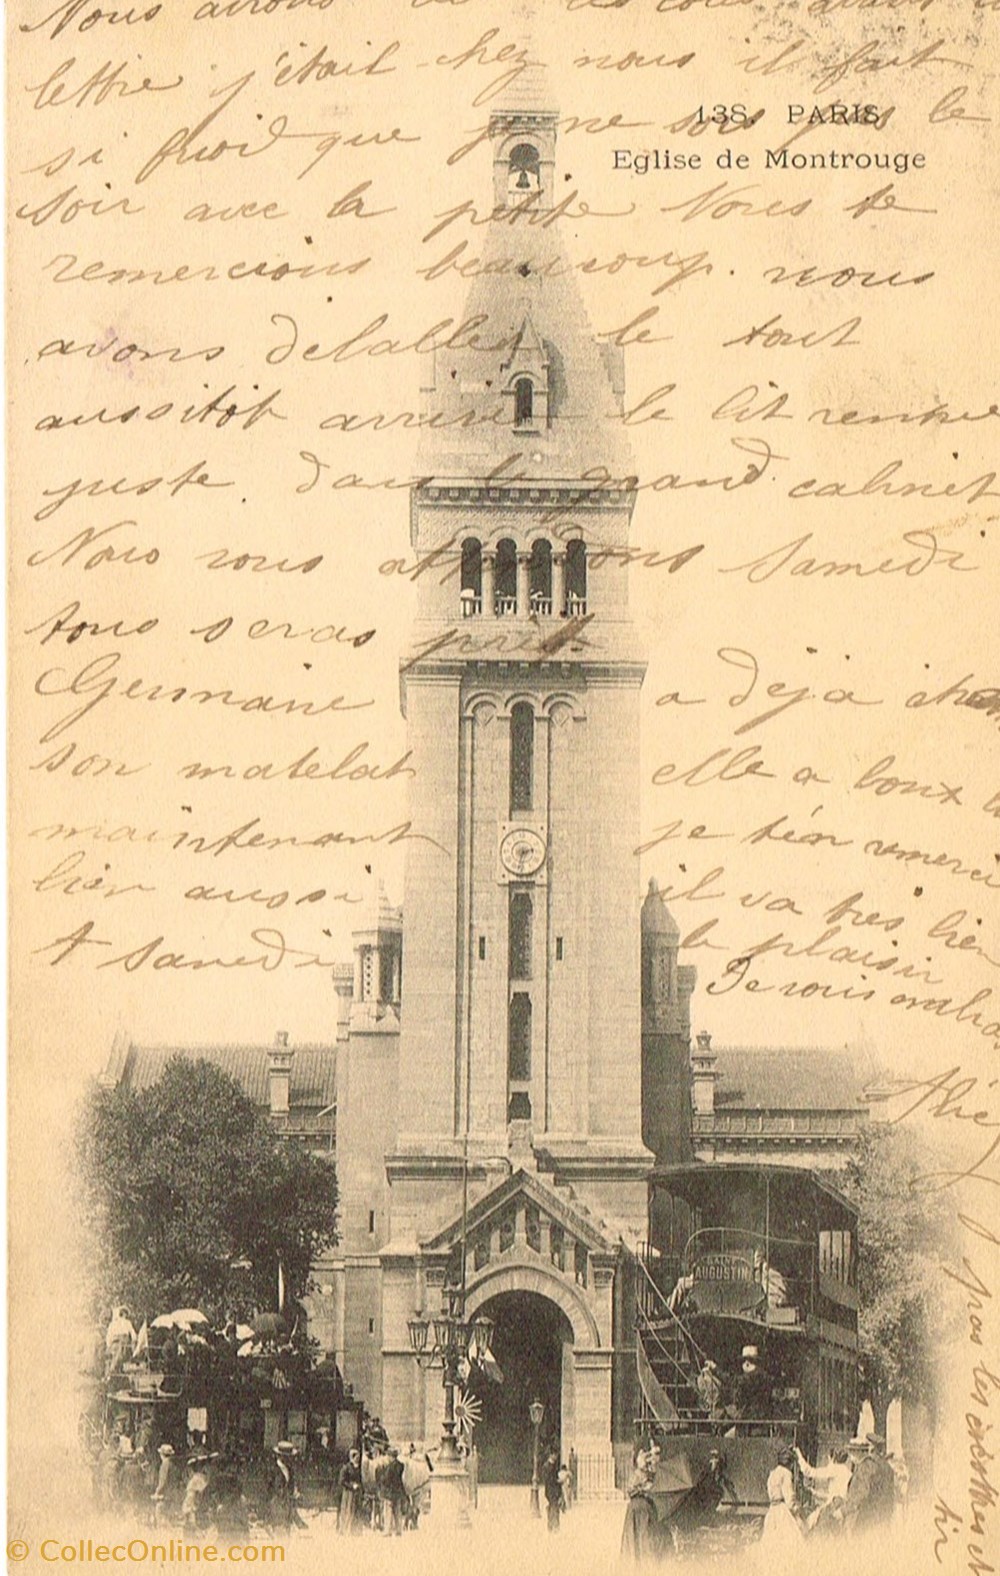 Nous avons
lettre j'étais chez nous il fait
138. PARIS
Eglise de Montrouge
si froid que je ne sors pas le
soir avec la petite Nous te
remercions beaucoup. nous
avons déballer le tout
aussitôt arriver le lit rentre
juste dans le grand cabinet
Nous vous attendons Samedi
tous seras prêt
Germaine a déjà
son matelat elle a
maintenant je t'en remerci
bien aussi il va très bien
A Samedi le plaisir
Je vous
pas les
AUGUSTIN
© CollecOnline.com